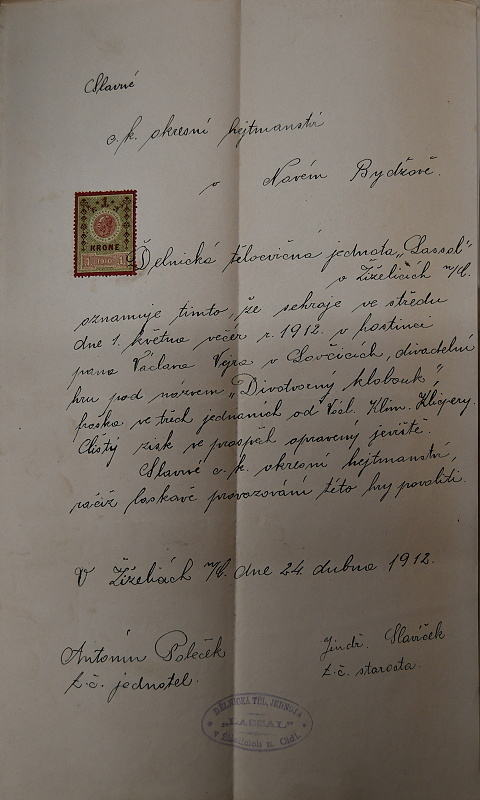 Slavné
c. k. okresní hejtmanství
v Novém Bydžově.
1
KRONE
1 1910 1
Dělnická tělocvičná jednota „Lassal"
v Žiželicích n/C.
oznamuje timto, že sehraje ve středu
dne 1. května večer r. 1912. v hostinci
pana Václava Vejra v Lovčicích, divadelní
hru pod názvem „Divotvorný klobouk",
fraška ve třech jednáních od Václ. Klim. Klicpery.
Čistý zisk ve prospěch opravený jeviště.
Slavné c. k. okresní hejtmanství,
račiž laskavě provozování této hry povoliti.
V Žiželicích n/C. dne 24. dubna 1912.
Antonín Poleček
t. č. jednatel.
Jindř. Slavíček
t. č. starosta.
DĚLNICKÁ TĚL. JEDNOTA
„LASSAL"
v Žiželicích n. Cidl.